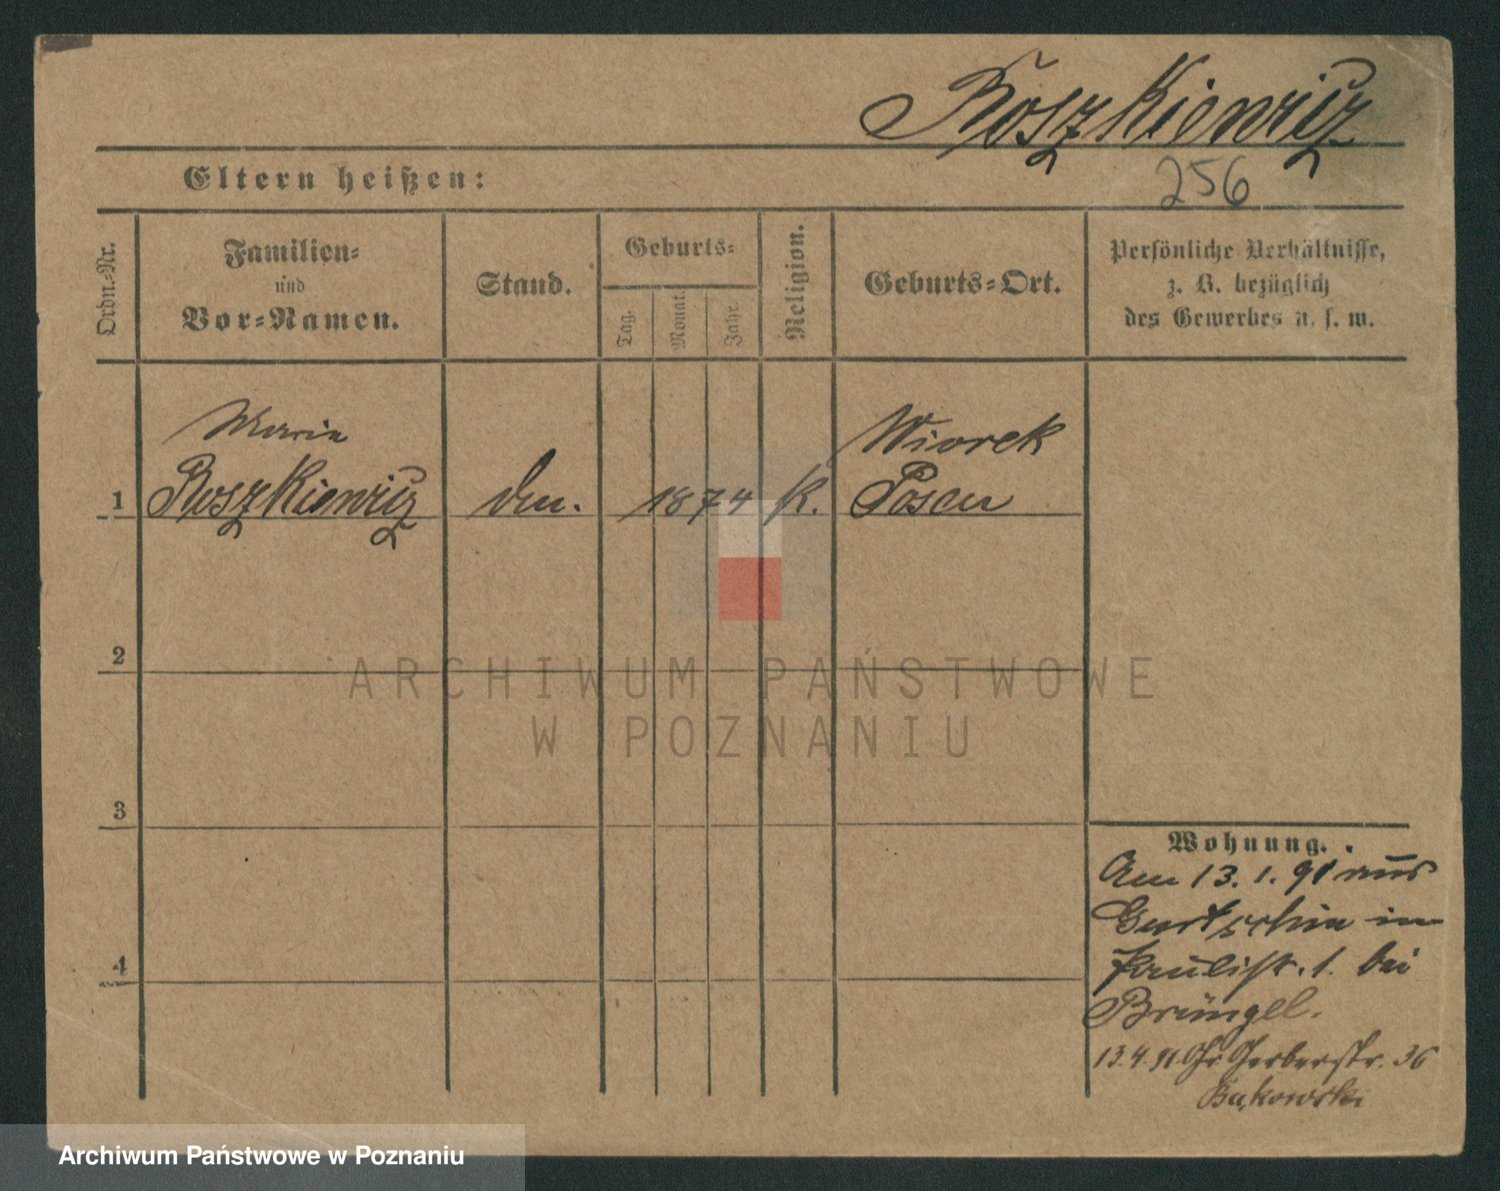 Roszkiewicz
Eltern heißen:
256
Ordn.-Nr.
Familien-
und
Vor-Namen.
Stand.
Geburts-
Tag.
Monat.
Jahr.
Religion.
Geburts-Ort.
Persönliche Verhältnisse,
z. B. bezüglich
des Gewerbes u. s. w.
Maria
Wiorek
1 Roszkiewicz 1874 K. Posen
2
3
4
Wohnung.
Am 13. 1. 91 aus
in
Paulist. 1. bei
Brüngel.
13.4.91 Gr. Gerberstr. 36
Bukowski
ARCHIWUM PAŃSTWOWE
W POZNANIU
Archiwum Państwowe w Poznaniu